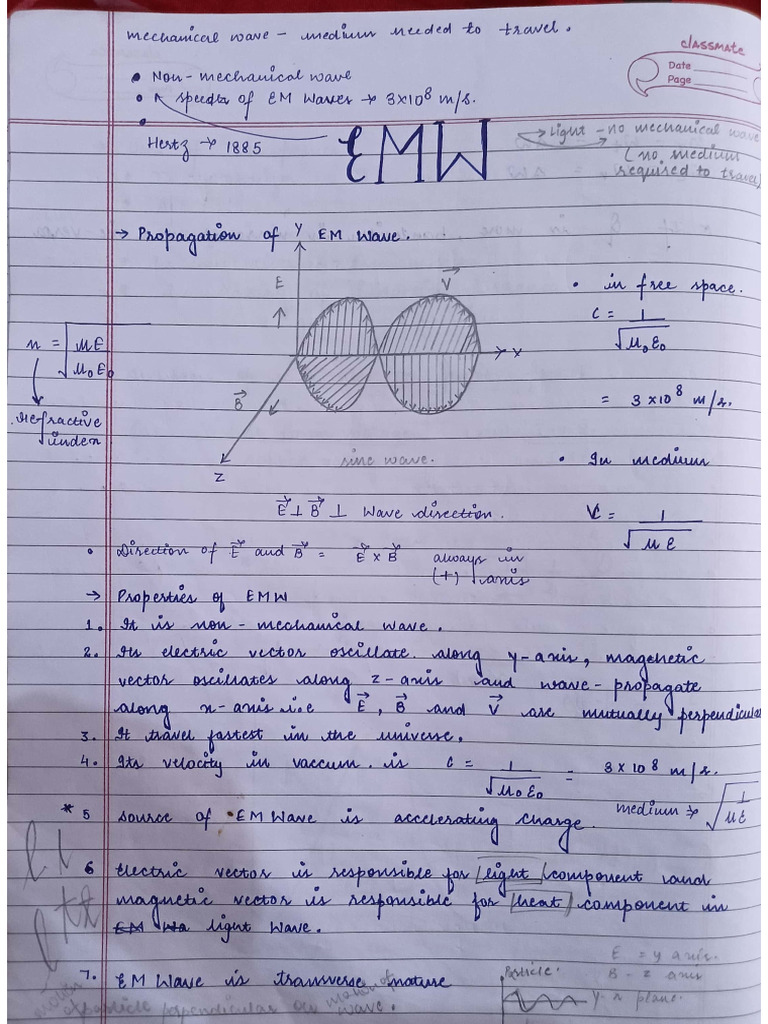 mechanical wave - medium needed to travel.
classmate
Date
Page
• Non-mechanical wave
• speed of EM Waves → 3×10⁸ m/s.
•
Hertz → 1885
EMW
→ Light - no mechanical wave
(no medium required to travel)
→ Propagation of EM Wave.
Y
E
↑
V⃗
X
B⃗
Z
sine wave.
• in free space.
C = 1/√μ₀ε₀
= 3×10⁸ m/s.
n = √με/μ₀ε₀
refractive
index
• In medium
V = 1/√με
E⃗ ⊥ B⃗ ⊥ Wave direction.
• Direction of E⃗ and B⃗ = E⃗ × B⃗ always in
(+) axis
→ Properties of EMW
1. It is non-mechanical wave.
2. Its electric vector oscillate along y-axis, magenetic
vector oscillates along z-axis and wave-propagate
along x-axis i.e E⃗, B⃗ and V⃗ are mutually perpendicular
3. It travel fastest in the universe.
4. Its velocity in vaccum. is C = 1/√μ₀ε₀ = 3×10⁸ m/s.
medium → √1/με
* 5 source of EM Wave is accelerating charge.
6 Electric vector is responsible for light component and
magnetic vector is responsible for heat component in
EM Wa light Wave.
7. EM Wave is transverse nature
motion of particle perpendicular on motion of
wave.
Particle.
E = y axis.
B - z axis
y-x plane.